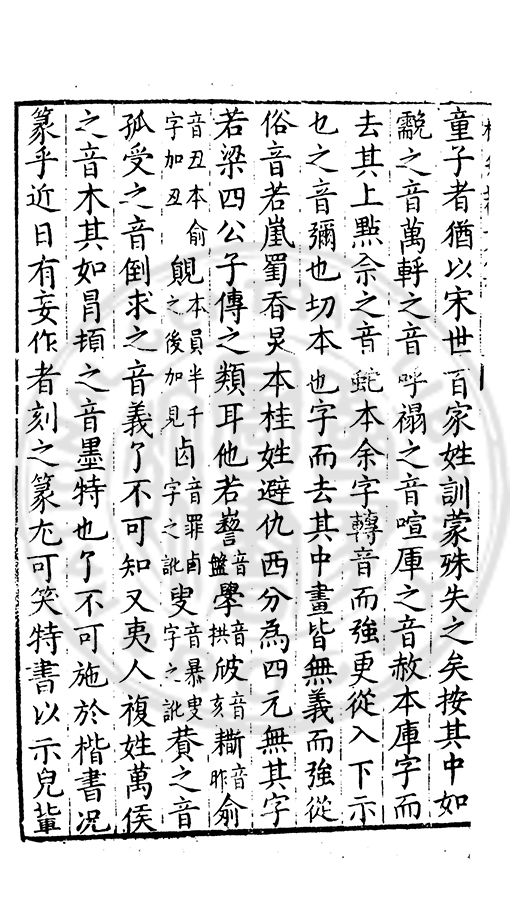 童子者猶以宋世百家姓訓蒙殊失之矣按其中如
之音萬軤之音呼禢之音喧厙之音赦本庫字而
去其上點佘之音蛇本余字轉音而強更從入下示
也之音彌也切本也字而去其中畫皆無義而強從
俗音若嵐蜀呑炅本桂姓避仇西分為四元無其字
若梁四公子傳之類耳他若音盤音拱音亥音昨俞
音丑本俞字加丑覞本員半千之後加見卤音罪卤字之訛㕟音暴叟字之訛蕡之音
孤受之音倒求之音義了不可知又夷人複姓萬俟
之音木其如冐頓之音墨特也了不可施於楷書况
篆乎近日有妄作者刻之篆尤可笑特書以示兒輩